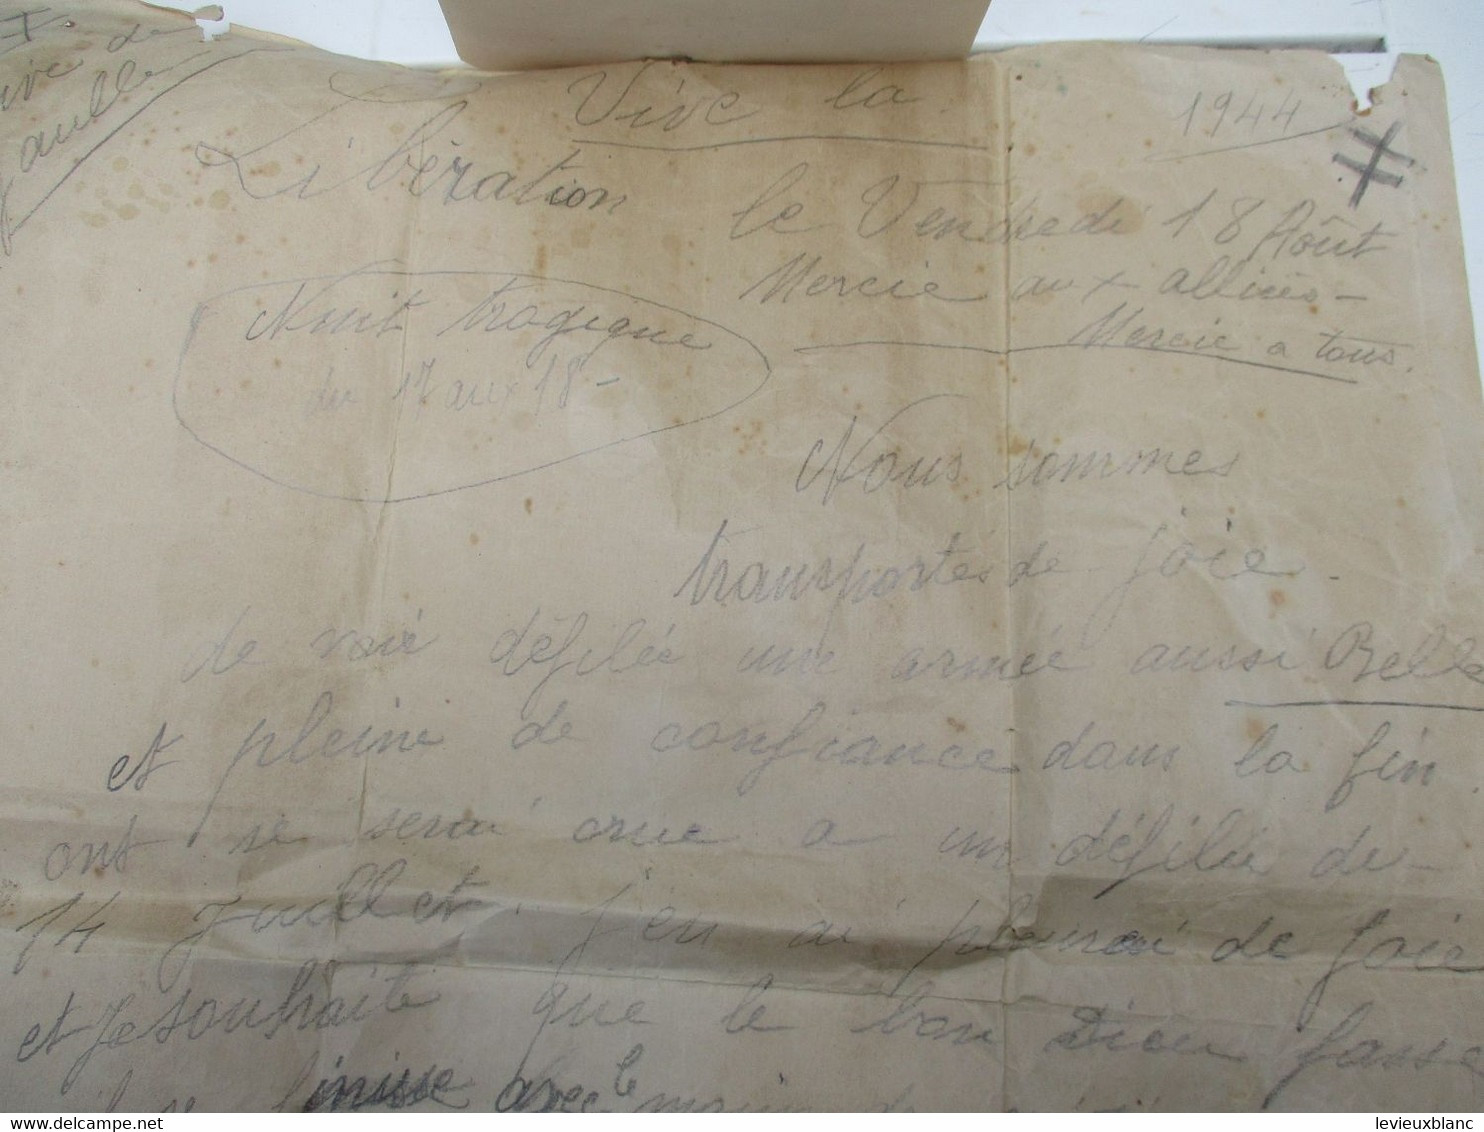 Vive de
Gaulle
Vive la
Libération
1944
le Vendredi 18 Août
Mercie aux alliés -
Mercie a tous.
Nuit tragique
du 17 aux 18 -
Nous sommes
transportés de joie.
de voir défilée une armée aussi Belle
et pleine de confiance dans la fin.
ont se serai crue a un défilée de
14 Juillet. j'en ai pleurai de joie
et Je souhaite que le bon Dieu fasse
finisse avec le
levieuxblanc